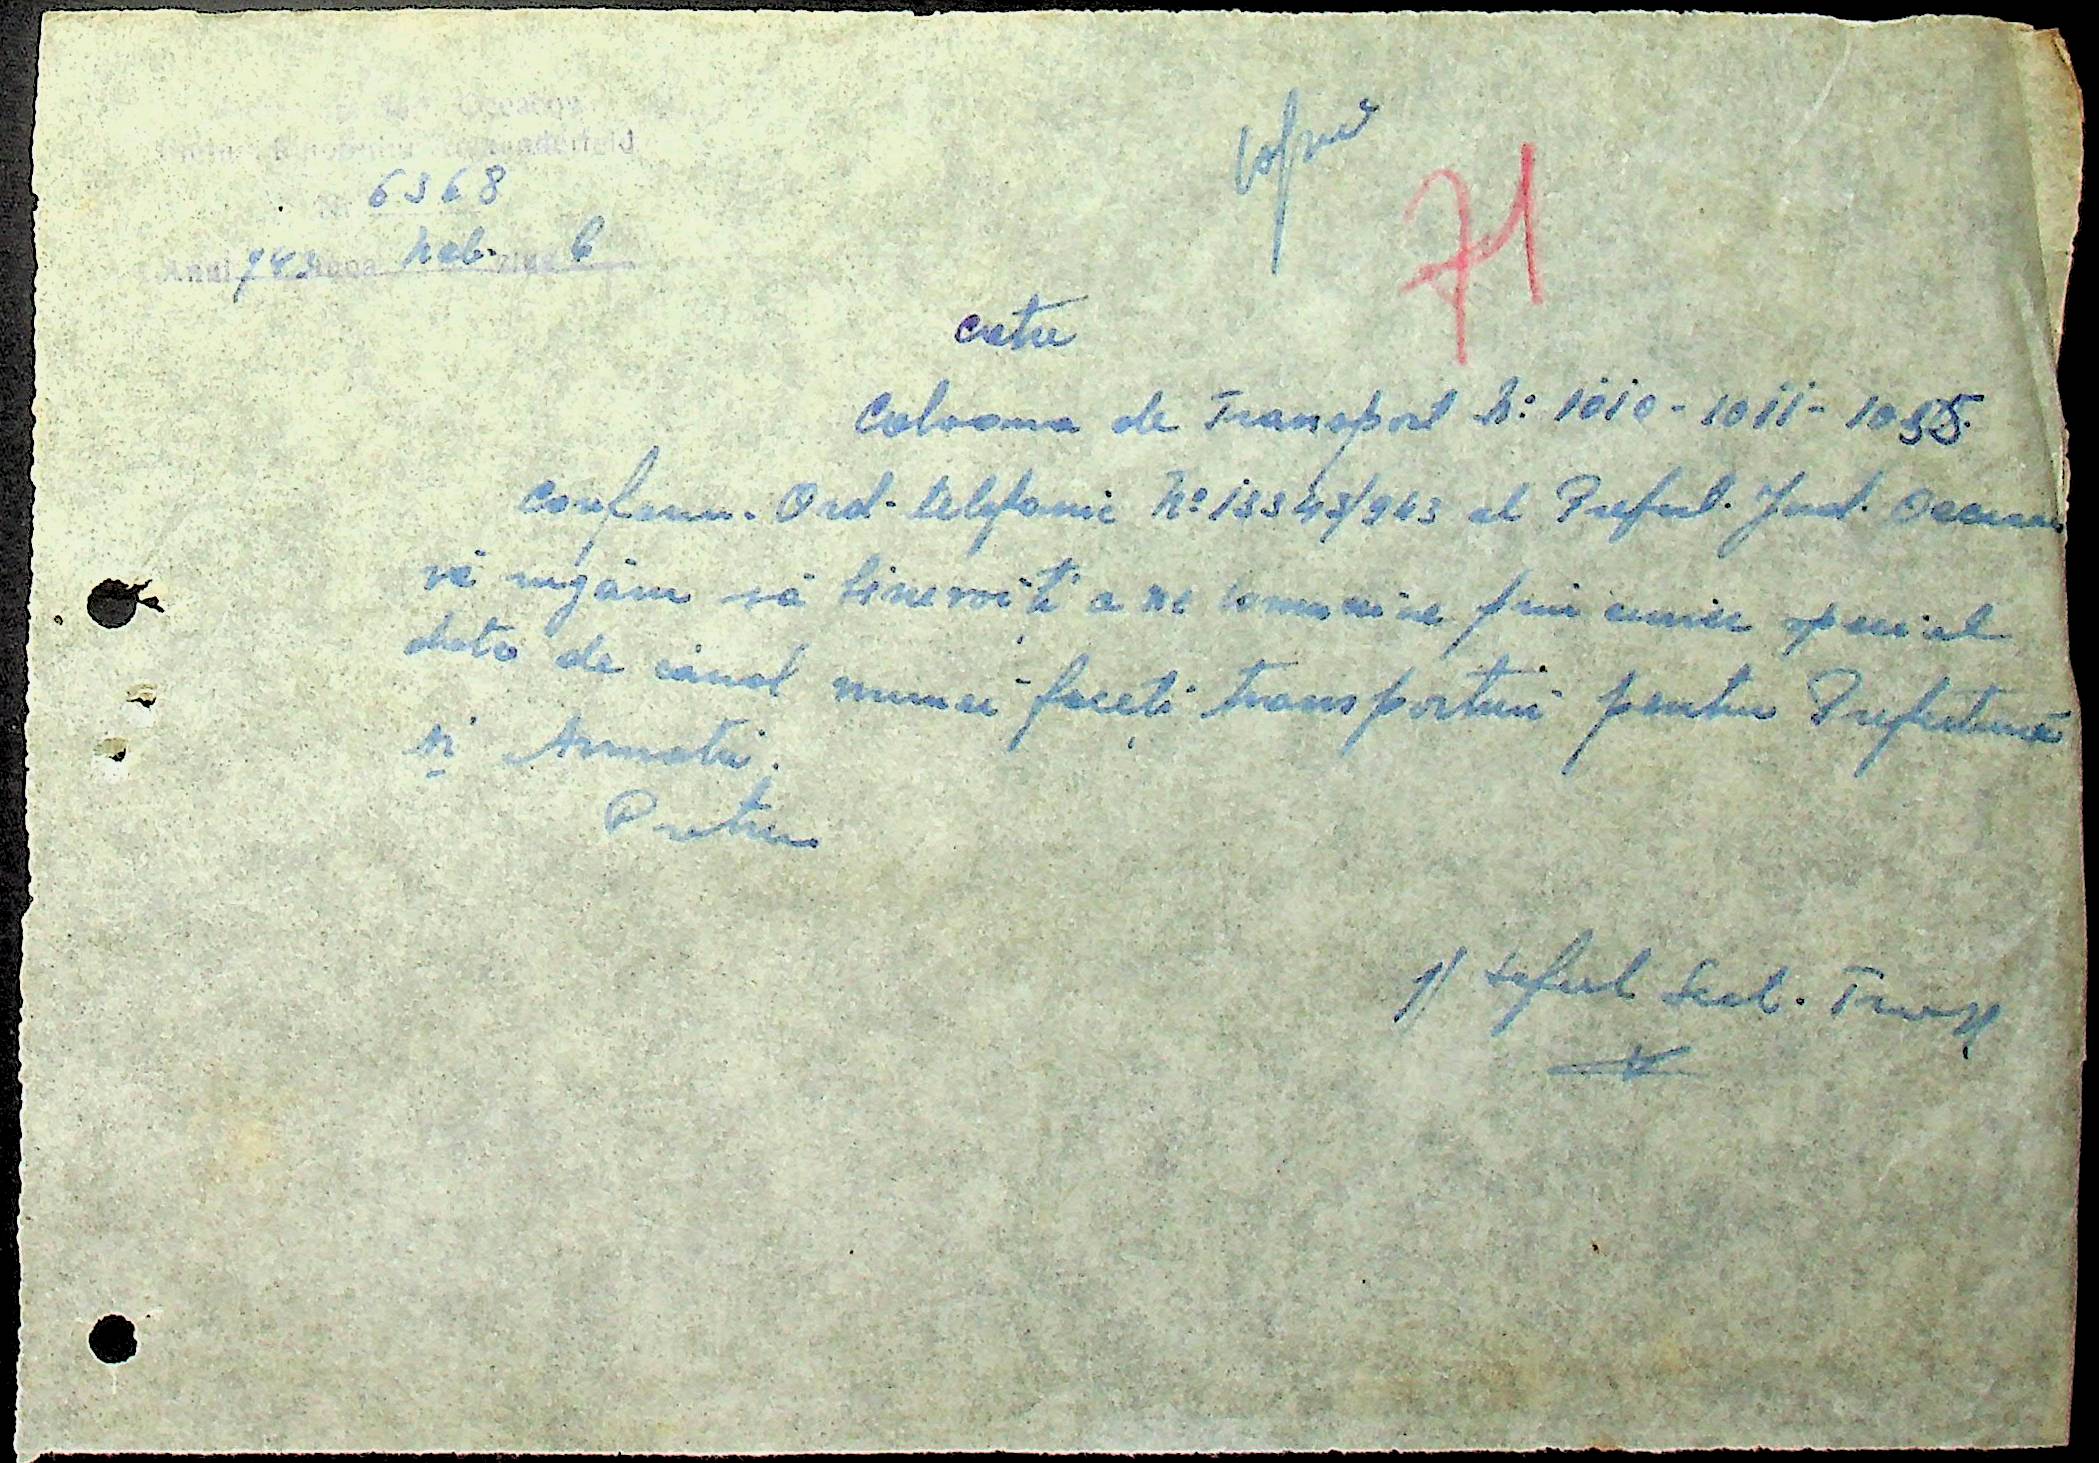 Oceacov
6368
Anul 943 Luna Nob. Ziua 6
Copie
71
Catre
Coloana de Transport No 1010-1011-1055.
Conform. Ord. telefonic No 13343/943 al Prefect. Jud. Oceacov
vă rugăm să binevoiti a ne comunica prin curier special
data de cand numai faceti transporturi pentru Prefectură
si Armată.
Pretor
p/ Seful Sect. Transp.